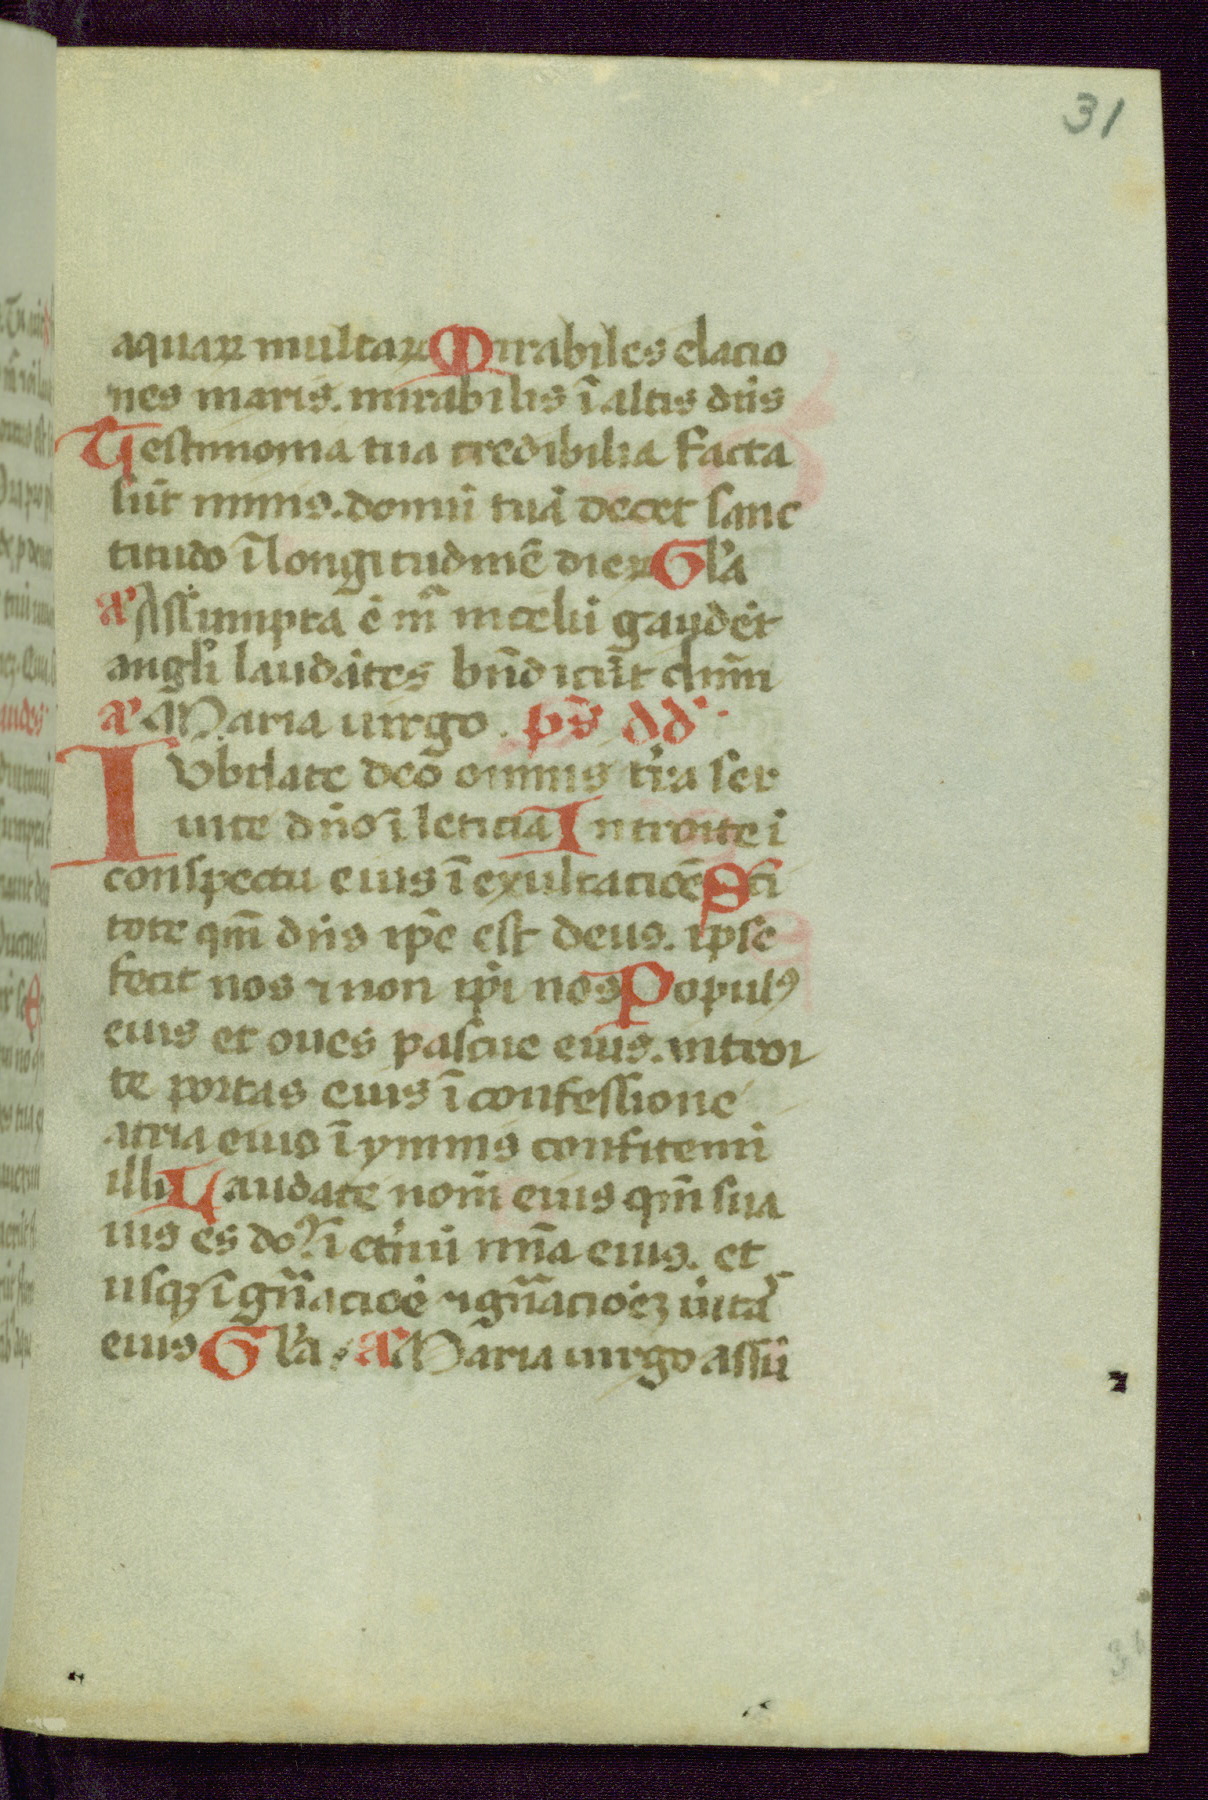 31
aquaꝝ multaꝝ Mirabiles elacio
nes maris. mirabilis ī altis dn̄s
Testimonia tua credibilia facta
sūt nimis. domū tuā decet sanc
titudo ī longitudinē dieꝝ Gl'a
a᷈ Assumpta ē m̄a in celū gaudēt
angl'i laudātes bn̄dicūt dnm̄
a᷈ Maria uirgo. ps̄ dd'.
Iubilate deo omnis t'ra ser
uite dn̄o ī leticia Introite ī
conspectu eius ī exultacioē Sci
tote qm̄ dn̄s ip̄e est deus. ipse
fecit nos ⁊ non ip̄i nos Populꝰ
eius et oues pascue eius. introi
te portas eius ī confessione
atria eius ī ymnis confitemī
illi Laudate nom̄ eius qm̄ sua
uis es do ī et'nū mīa eius. et
usqꝫ ī gn̄acioē ⁊ gn̄acioēꝫ uitā
eius Gl'a. a᷈ Maria uirgo assū